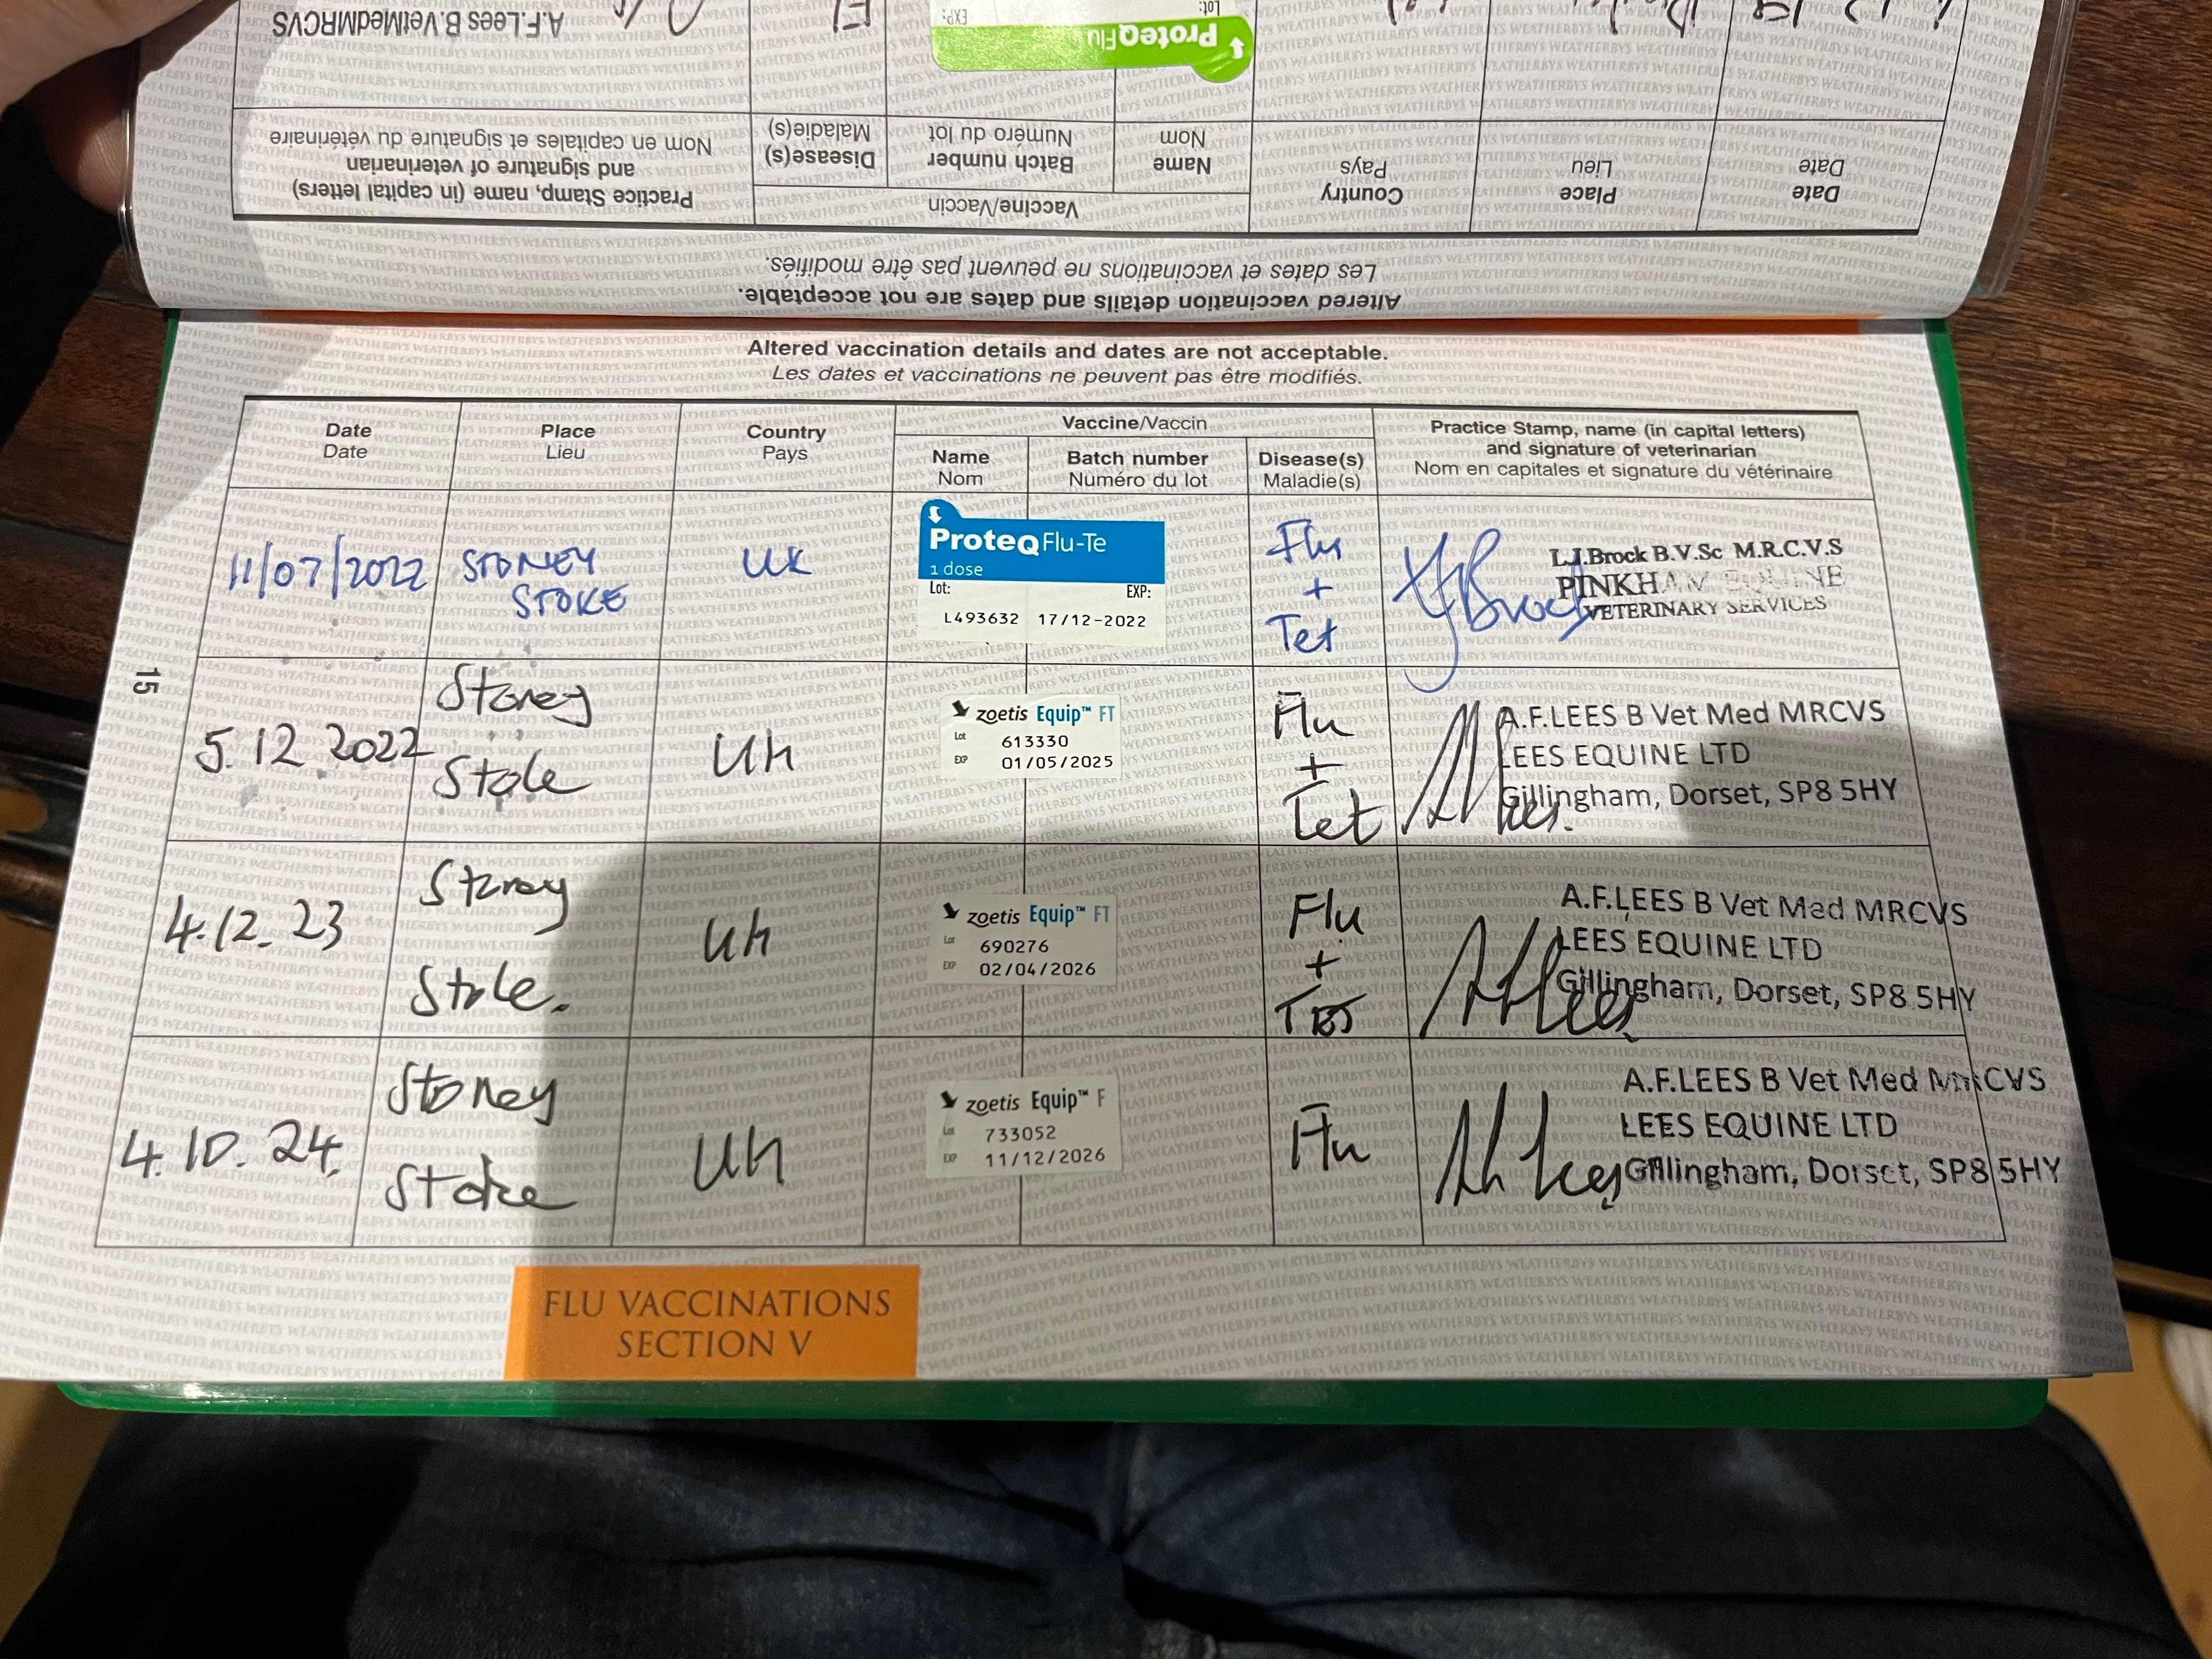 A.F.Lees B.VetMedMRCVS
EXP:
Lot:
ProteqFlu
Practice Stamp, name (in capital letters)
and signature of veterinarian
Nom en capitales et signature du vétérinaire
Disease(s)
Maladie(s)
Batch number
Numéro du lot
Name
Nom
Vaccine/Vaccin
Country
Pays
Place
Lieu
Date
Date
Altered vaccination details and dates are not acceptable.
Les dates et vaccinations ne peuvent pas être modifiés.
Altered vaccination details and dates are not acceptable.
Les dates et vaccinations ne peuvent pas être modifiés.
Date
Date
Place
Lieu
Country
Pays
Vaccine/Vaccin
Name
Nom
Batch number
Numéro du lot
Disease(s)
Maladie(s)
Practice Stamp, name (in capital letters)
and signature of veterinarian
Nom en capitales et signature du vétérinaire
11/07/2022
STONEY
STOKE
UK
ProteqFlu-Te
1 dose
Lot: EXP:
L493632 17/12-2022
Flu
+
Tet
L.J.Brock B.V.Sc M.R.C.V.S
PINKHAM EQUINE
VETERINARY SERVICES
15
5.12.2022
Stoney
Stoke
UK
zoetis Equip™ FT
Lot 613330
EXP 01/05/2025
Flu
+
Tet
A.F.LEES B Vet Med MRCVS
LEES EQUINE LTD
Gillingham, Dorset, SP8 5HY
4.12.23
Stoney
Stoke.
UK
zoetis Equip™ FT
Lot 690276
EXP 02/04/2026
Flu
+
Tet
A.F.LEES B Vet Med MRCVS
LEES EQUINE LTD
Gillingham, Dorset, SP8 5HY
4.10.24.
Stoney
Stoke
UK
zoetis Equip™ F
Lot 733052
EXP 11/12/2026
Flu
A.F.LEES B Vet Med MRCVS
LEES EQUINE LTD
Gillingham, Dorset, SP8 5HY
FLU VACCINATIONS
SECTION V
WEATHERBYS